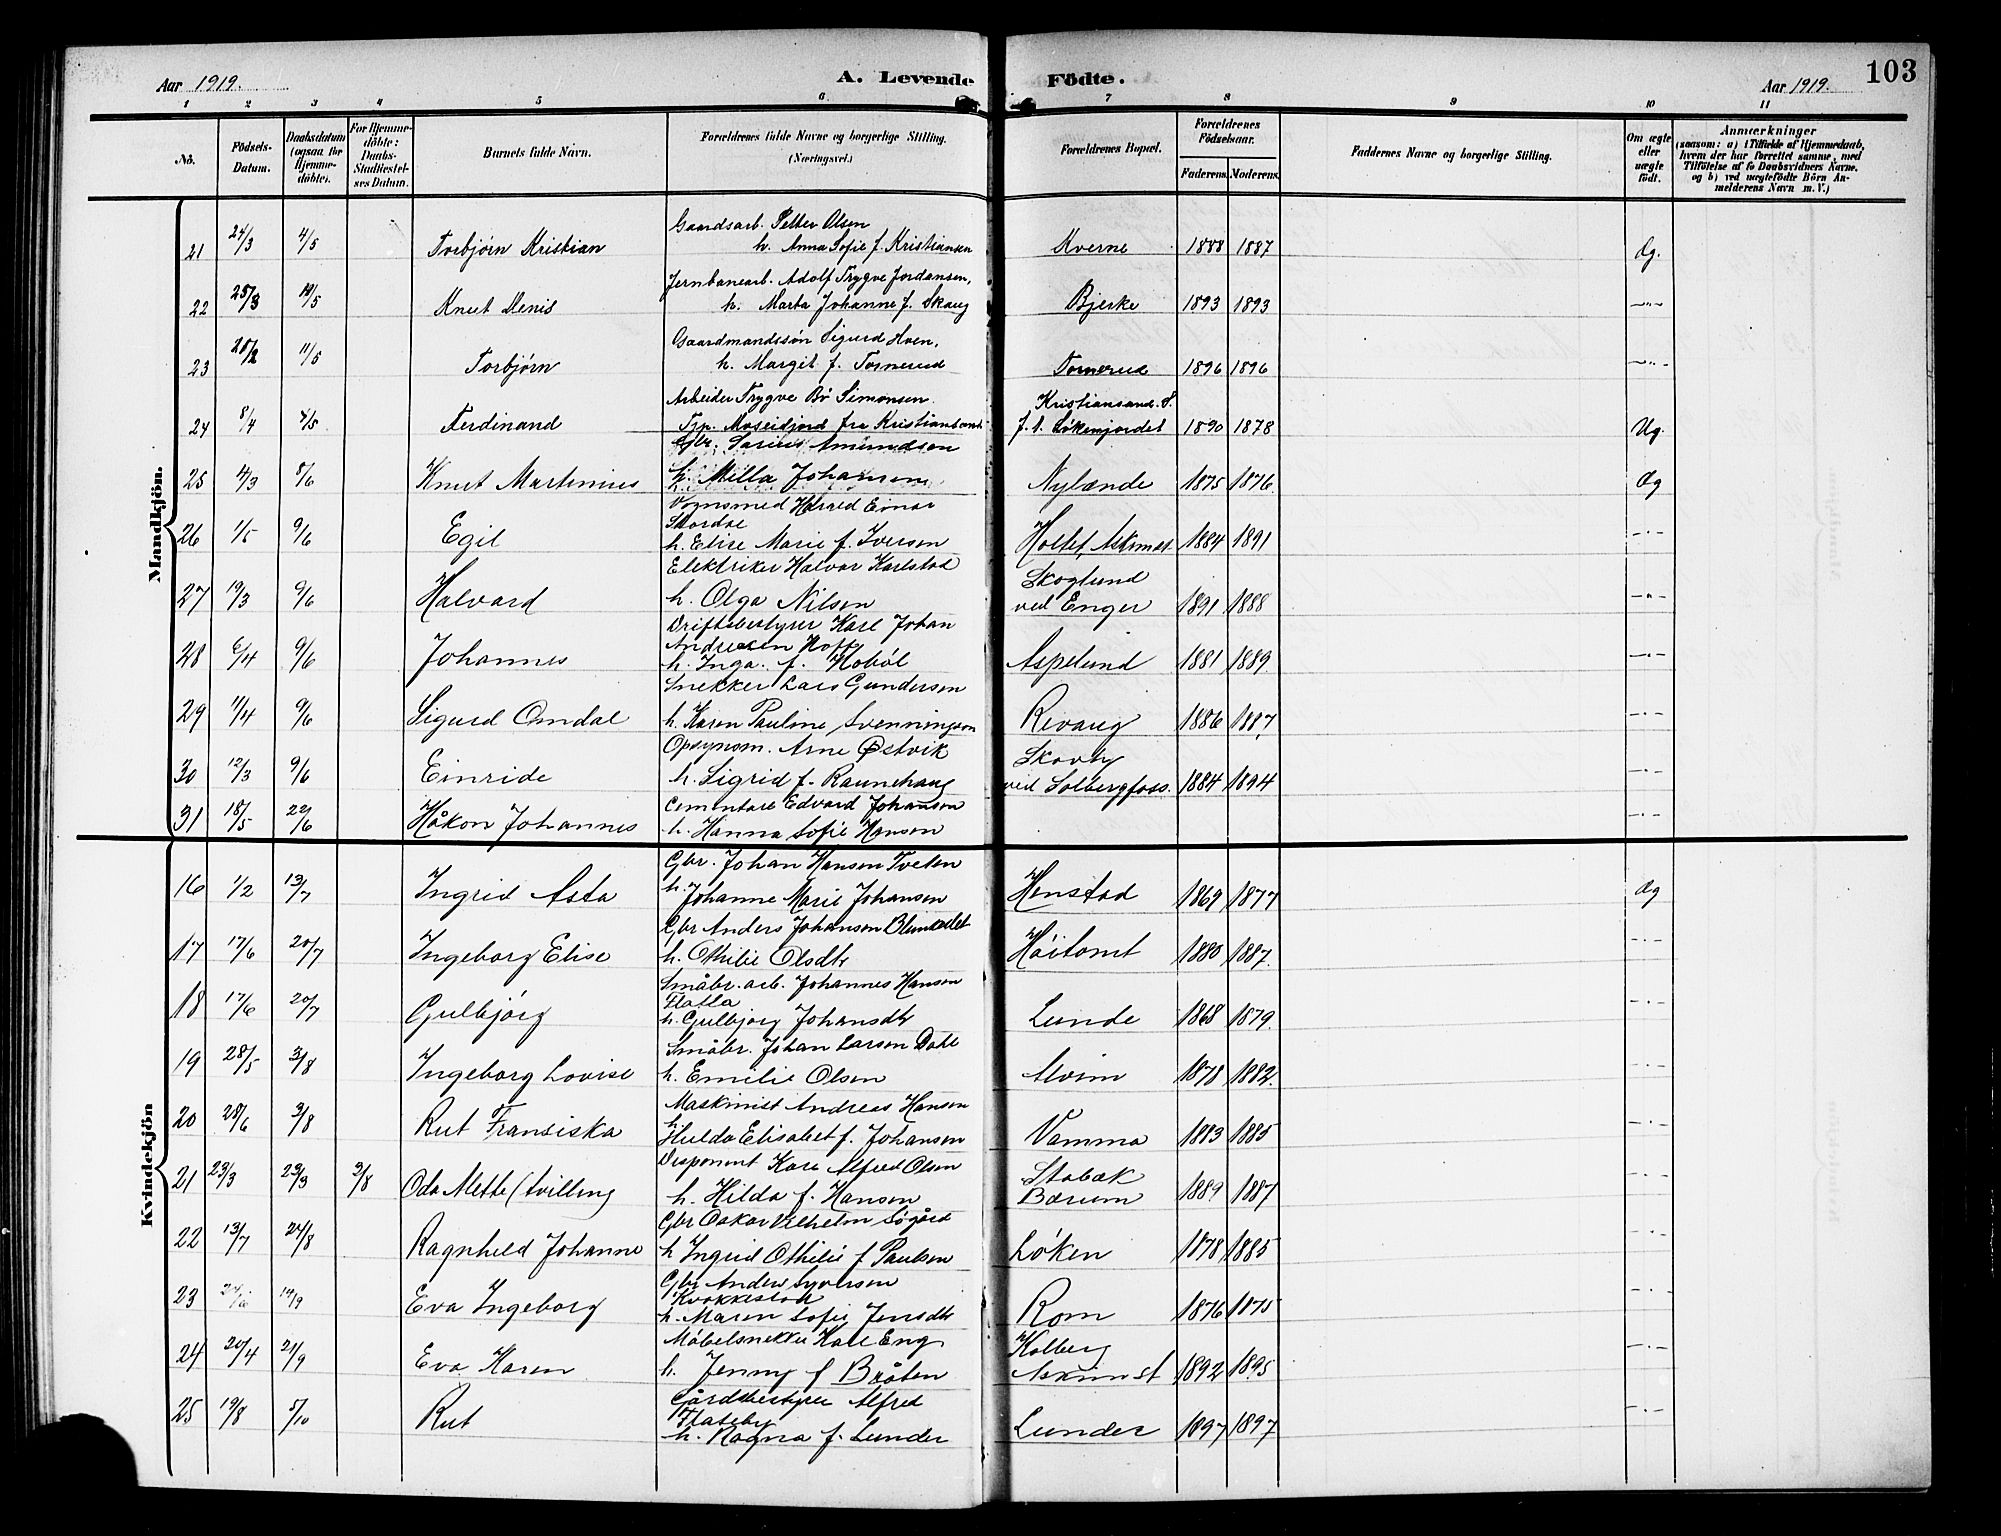 Aar 1919.
A. Levende Födte.
Aar 1919.
103
1 2 3 4 5 6 7 8 9 10 11
Nô.
Födsels-Datum.
Daabsdatum (ogsaa for Hjemmedöbte).
For Hjemmedöbte: Daabs-Stadfæstelses Datum.
Barnets fulde Navn.
Forældrenes fulde Navne og borgerlige Stilling. (Næringsvei.)
Forældrenes Bopæl.
Forældrenes Födselsaar.
Faderens. Moderens.
Faddernes Navne og borgerlige Stilling.
Om ægte eller uægte födt.
Anmærkninger
(saasom: a) i Tilfælde af Hjemmedaab, hvem der har forrettet samme, med Tilföielse af to Daabsvidners Navne, og b) ved uægtefödte Börn Anmelderens Navn m. V.)
Mandkjön.
21 24/3 4/5 Torbjørn Kristian Gaardsarb. Petter Olsen
h. Anna Sofie f. Kristiansen Kverne 1888 1887 Æg.
22 25/3 11/5 Knut Denis Jernbanearb. Adolf Trygve Jordansen,
h. Marta Johanne f. Skaug Bjerke 1893 1893 —"—
23 25/2 11/5 Torbjørn Gaardmandssøn Sigurd Hven,
h. Margit f. Tosnerud Tosnerud 1896 1896 —"—
24 8/4 4/5 Ferdinand Arbeider Trygve Bø Simonsen Kristiansand. S.
Moseidjord fra Kristiansand f. t. Løkenjordet 1890 1878 Ug.
25 4/3 8/6 Knut Martinius Gbr. Sarius Amundsen
h. Milla Johansen Nylænde 1875 1876 Æg
26 1/5 9/6 Egil Vognsmed Harred Einar
Skordal
h. Elise Marie f. Iversen Holtet, Askimst. 1884 1891 —"—
27 19/3 9/6 Halvard Elektriker Halvor Karlstad Skoglund
h. Olga Nilsen ved Enger 1891 1888 —"—
28 6/4 9/6 Johannes Driftsbestyrer Karl Johan
Andresen Hoff
h. Inga. f. Hobøl Aspelund 1881 1889 —"—
29 11/4 9/6 Sigurd Omdal Snekker Lars Gundersen
h. Karen Pauline Svenningsen Revaug 1886 1887 —"—
30 12/3 9/6 Einride Opsynsm. Arne Østvik Skovly
h. Sigrid f. Raunehaug ved Solbergfoss. 1884 1894 —"—
31 18/5 22/6 Håkon Johannes Cementarb Edvard Johansen
h. Hanna Sofie Hansen —"—
Kvindekjön
16 1/2 13/7 Ingrid Asta Gbr. Johan Hansen Tveten
h. Johanne Marie Johansen Henstad 1869 1877 Æg
17 17/6 20/7 Ingeborg Elise Gbr Anders Johansen
h. Othilie Olsdtr Høitomt 1880 1887. —"—
18 17/6 20/7 Gulbjørg Småbr. arb. Johannes Hansen
Flatla
h. Gulbjørg Johansdtr Lunde 1868 1879. —"—
19 28/5 3/8 Ingeborg Lovise Småbr. Johan Larsen Dahl
h. Emilie Olsen Alvim 1878 1882. —"—
20 28/6 3/8 Rut Fransiska Maskinist Andreas Hansen
h. Hulda Elisabet f. Johansen Vamma 1883 1885 —"—
21 23/3 23/3 3/8 Oda Mette (tvilling Disponent Karl Alfred Olsen Stabæk
h. Hilda f. Hansen Bærum 1889 1887 —"—
22 13/7 24/8 Ragnhild Johanne Gbr Oskar Vilhelm Søgård
h Ingrid Othilie f Paulsen Løken 1878 1885 —"—
23 14/9 Eva Ingeborg Gbr Anders Syversen
Kvakkestad
h. Maren Sofie Jensdtr Rom 1876 1875 —"—
24 20/4 21/9 Eva Karen Møbelsnekker Karl Eng Kolberg
h. Jenny f Bråten Askimst 1892 1895 —"—
25 19/8 5/10 Rut Gårdsbestyrer Alfred
Flateby
h. Ragna f. Lunder Lunder 1897 1897 —"—